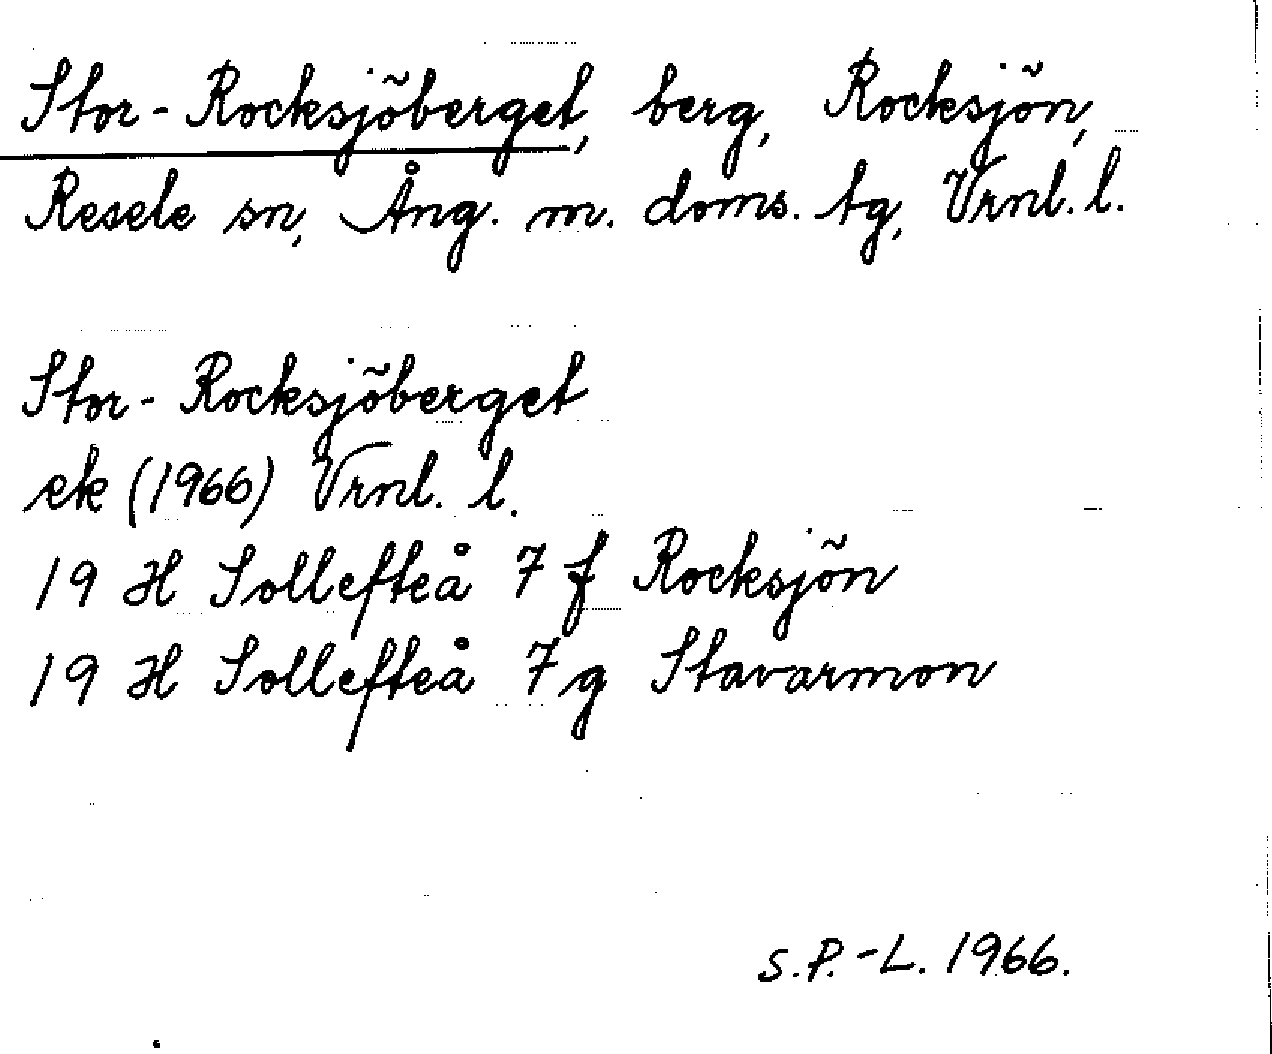 Stor-Rocksjöberget, berg, Rocksjön,
Resele sn, Ång. m. doms. tg, Vrnl. l.
Stor-Rocksjöberget
ek (1966) Vrnl. l.
19 H Sollefteå 7 f Rocksjön
19 H Sollefteå 7 g Stavarmon
S.P.-L. 1966.